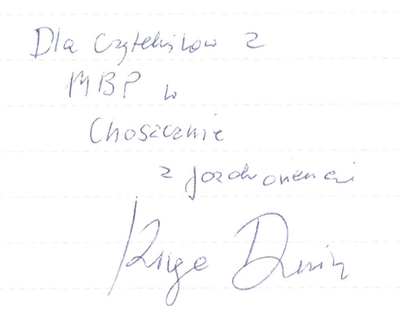 Dla Czytelników z
MBP w
Choszcznie
z pozdrowieniami
Kinga Dunin